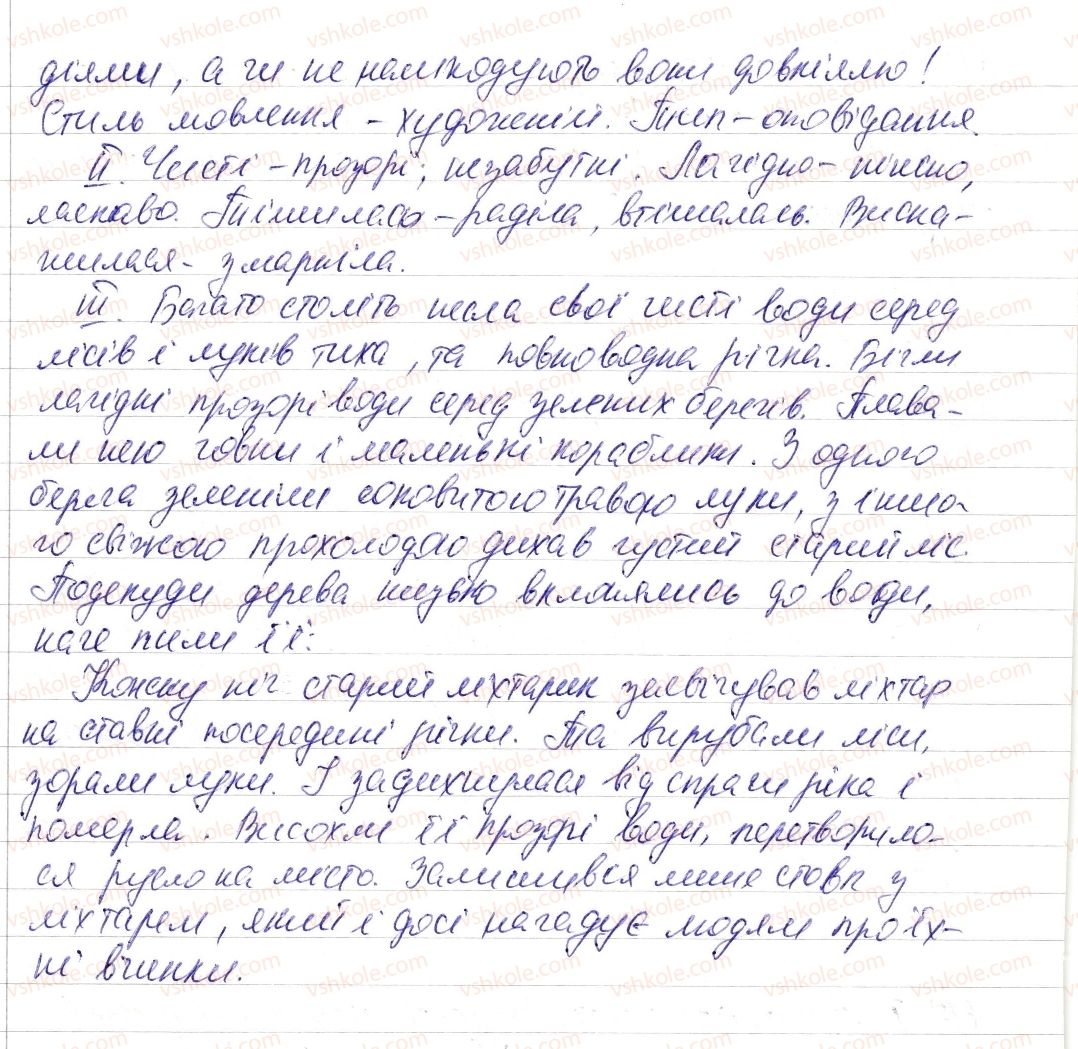 діями, а чи не нашкодують вони довкіллю!
Стиль мовлення - художній. Тип - оповідання.
II. Чисті - прозорі, незабутні. Лагідно - ніжно,
ласкаво. Тішилась - раділа, втішалась. Висна-
жилася - змарніла.
III. Багато століть несла свої чисті води серед
лісів і луків тиха, та повноводна річка. Бігли
лагідні прозорі води серед зелених берегів. Плава-
ли нею човни і маленькі кораблики. З одного
берега зеленіли соковитою травою луки, з іншо-
го свіжою прохолодою дихав густий старий ліс.
Подекуди дерева низько вклонялись до води,
наче пили її.
Кожну ніч старий ліхтарик засвічував ліхтар
на ставні посередині річки. Та вирубали ліси,
зорали луки. І задихнулася від спраги ріка і
померла. Висохли її прозорі води, перетворило-
ся русло на місто. Залишився лише стовп з
ліхтарем, який і досі нагадує людям про їх-
ні вчинки.
vshkole.com